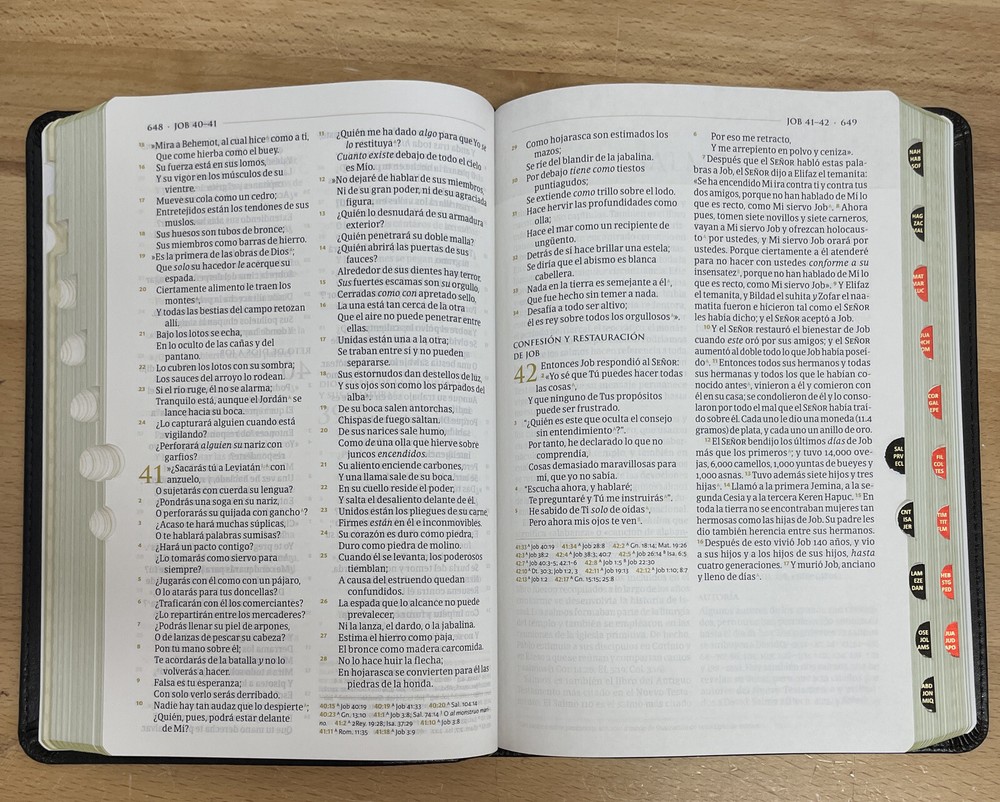 648 · JOB 40–41
15 »Mira a Behemot, al cual hice como a ti,
Que come hierba como el buey.
16 Su fuerza está en sus lomos,
Y su vigor en los músculos de su
vientre.
17 Mueve su cola como un cedro;
Entretejidos están los tendones de sus
muslos.
18 Sus huesos son tubos de bronce;
Sus miembros como barras de hierro.
19 »Es la primera de las obras de Dios;
Que solo su hacedor le acerque su
espada.
20 Ciertamente alimento le traen los
montes,
Y todas las bestias del campo retozan
allí.
21 Bajo los lotos se echa,
En lo oculto de las cañas y del
pantano.
22 Lo cubren los lotos con su sombra;
Los sauces del arroyo lo rodean.
23 Si el río ruge, él no se alarma;
Tranquilo está, aunque el Jordán se
lance hacia su boca.
24 ¿Lo capturará alguien cuando está
vigilando?
¿Perforará alguien su nariz con
garfios?
41 »¿Sacarás tú a Leviatán con
anzuelo,
O sujetarás con cuerda su lengua?
2 ¿Pondrás una soga en su nariz,
O perforarás su quijada con gancho?
3 ¿Acaso te hará muchas súplicas,
O te hablará palabras sumisas?
4 ¿Hará un pacto contigo?
¿Lo tomarás como siervo para
siempre?
5 ¿Jugarás con él como con un pájaro,
O lo atarás para tus doncellas?
6 ¿Traficarán con él los comerciantes?
¿Lo repartirán entre los mercaderes?
7 ¿Podrás llenar su piel de arpones,
O de lanzas de pescar su cabeza?
8 Pon tu mano sobre él;
Te acordarás de la batalla y no lo
volverás a hacer.
9 Falsa es tu esperanza;
Con solo verlo serás derribado.
10 Nadie hay tan audaz que lo despierte;
¿Quién, pues, podrá estar delante
de Mí?
11 ¿Quién me ha dado algo para que Yo se
lo restituya?
Cuanto existe debajo de todo el cielo
es Mío.
12 »No dejaré de hablar de sus miembros,
Ni de su gran poder, ni de su agraciada
figura.
13 ¿Quién lo desnudará de su armadura
exterior?
¿Quién penetrará su doble malla?
14 ¿Quién abrirá las puertas de sus
fauces?
Alrededor de sus dientes hay terror.
15 Sus fuertes escamas son su orgullo,
Cerradas como con apretado sello.
16 La una está tan cerca de la otra
Que el aire no puede penetrar entre
ellas.
17 Unidas están una a la otra;
Se traban entre sí y no pueden
separarse.
18 Sus estornudos dan destellos de luz,
Y sus ojos son como los párpados del
alba.
19 De su boca salen antorchas,
Chispas de fuego saltan.
20 De sus narices sale humo,
Como de una olla que hierve sobre
juncos encendidos.
21 Su aliento enciende carbones,
Y una llama sale de su boca.
22 En su cuello reside el poder,
Y salta el desaliento delante de él.
23 Unidos están los pliegues de su carne,
Firmes están en él e inconmovibles.
24 Su corazón es duro como piedra,
Duro como piedra de molino.
25 Cuando él se levanta, los poderosos
tiemblan;
A causa del estruendo quedan
confundidos.
26 La espada que lo alcance no puede
prevalecer,
Ni la lanza, el dardo, o la jabalina.
27 Estima el hierro como paja,
El bronce como madera carcomida.
28 No lo hace huir la flecha;
En hojarasca se convierten para él las
piedras de la honda.
40:15 Job 40:19 40:19 Job 41:33 40:20 Sal. 104:14
40:23 Gn. 13:10 41:1 Job 3:8; Sal. 74:14 O al monstruo mari-
no. 41:2 2Rey. 19:28; Isa. 37:29 41:10 Job 3:8
41:11 Rom. 11:35 41:18 Job 3:9
JOB 41–42 · 649
29 Como hojarasca son estimados los
mazos;
Se ríe del blandir de la jabalina.
30 Por debajo tiene como tiestos
puntiagudos;
Se extiende como trillo sobre el lodo.
31 Hace hervir las profundidades como
olla;
Hace el mar como un recipiente de
ungüento.
32 Detrás de sí hace brillar una estela;
Se diría que el abismo es blanca
cabellera.
33 Nada en la tierra es semejante a él,
Que fue hecho sin temer a nada.
34 Desafía a todo ser altivo;
él es rey sobre todos los orgullosos».
CONFESIÓN Y RESTAURACIÓN
DE JOB
42 Entonces Job respondió al SEÑOR:
2 «Yo sé que Tú puedes hacer todas
las cosas,
Y que ninguno de Tus propósitos
puede ser frustrado.
3 "¿Quién es este que oculta el consejo
sin entendimiento?".
Por tanto, he declarado lo que no
comprendía,
Cosas demasiado maravillosas para
mí, que yo no sabía.
4 "Escucha ahora, y hablaré;
Te preguntaré y Tú me instruirás".
5 He sabido de Ti solo de oídas,
Pero ahora mis ojos te ven.
41:33 Job 40:19 41:34 Job 28:8 42:2 Gn. 18:14; Mat. 19:26
42:3 Job 38:2 42:4 Job 38:3; 40:7 42:5 Job 26:14 Isa. 6:5
42:7 Job 40:3-5; 42:1-6 42:8 Job 1:5 Job 22:30
42:10 Dt. 30:3; Job 1:2, 3 42:11 Job 19:13 42:12 Job 1:10; 8:7
42:13 Job 1:2 42:17 Gn. 15:15; 25:8
6 Por eso me retracto,
Y me arrepiento en polvo y ceniza».
7 Después que el SEÑOR habló estas pala-
bras a Job, el SEÑOR dijo a Elifaz el temanita:
«Se ha encendido Mi ira contra ti y contra tus
dos amigos, porque no han hablado de Mí lo
que es recto, como Mi siervo Job. 8 Ahora
pues, tomen siete novillos y siete carneros,
vayan a Mi siervo Job y ofrezcan holocaus-
to por ustedes, y Mi siervo Job orará por
ustedes. Porque ciertamente a él atenderé
para no hacer con ustedes conforme a su
insensatez, porque no han hablado de Mí lo
que es recto, como Mi siervo Job». 9 Y Elifaz
el temanita, y Bildad el suhita y Zofar el naa-
matita fueron e hicieron tal como el SEÑOR
les había dicho; y el SEÑOR aceptó a Job.
10 Y el SEÑOR restauró el bienestar de Job
cuando este oró por sus amigos; y el SEÑOR
aumentó al doble todo lo que Job había poseí-
do. 11 Entonces todos sus hermanos y todas
sus hermanas y todos los que le habían co-
nocido antes, vinieron a él y comieron con
él en su casa; se condolieron de él y lo conso-
laron por todo el mal que el SEÑOR había traí-
do sobre él. Cada uno le dio una moneda (11.4
gramos) de plata, y cada uno un anillo de oro.
12 El SEÑOR bendijo los últimos días de Job
más que los primeros; y tuvo 14,000 ove-
jas, 6,000 camellos, 1,000 yuntas de bueyes y
1,000 asnas. 13 Tuvo además siete hijos y tres
hijas. 14 Llamó a la primera Jemina, a la se-
gunda Cesia y a la tercera Keren Hapuc. 15 En
toda la tierra no se encontraban mujeres tan
hermosas como las hijas de Job. Su padre les
dio también herencia entre sus hermanos.
16 Después de esto vivió Job 140 años, y vio
a sus hijos y a los hijos de sus hijos, hasta
cuatro generaciones. 17 Y murió Job, anciano
y lleno de días.
NAH
HAB
SOF
HAG
ZAC
MAL
MAT
MAR
LUC
JUA
HCH
ROM
COR
GAL
EFE
SAL
PRV
ECL
FIL
COL
TES
CNT
ISA
JER
TIM
TIT
FLM
LAM
EZE
DAN
HEB
STG
PED
OSE
JOL
AMS
JUA
JUD
APO
ABD
JON
MIQ